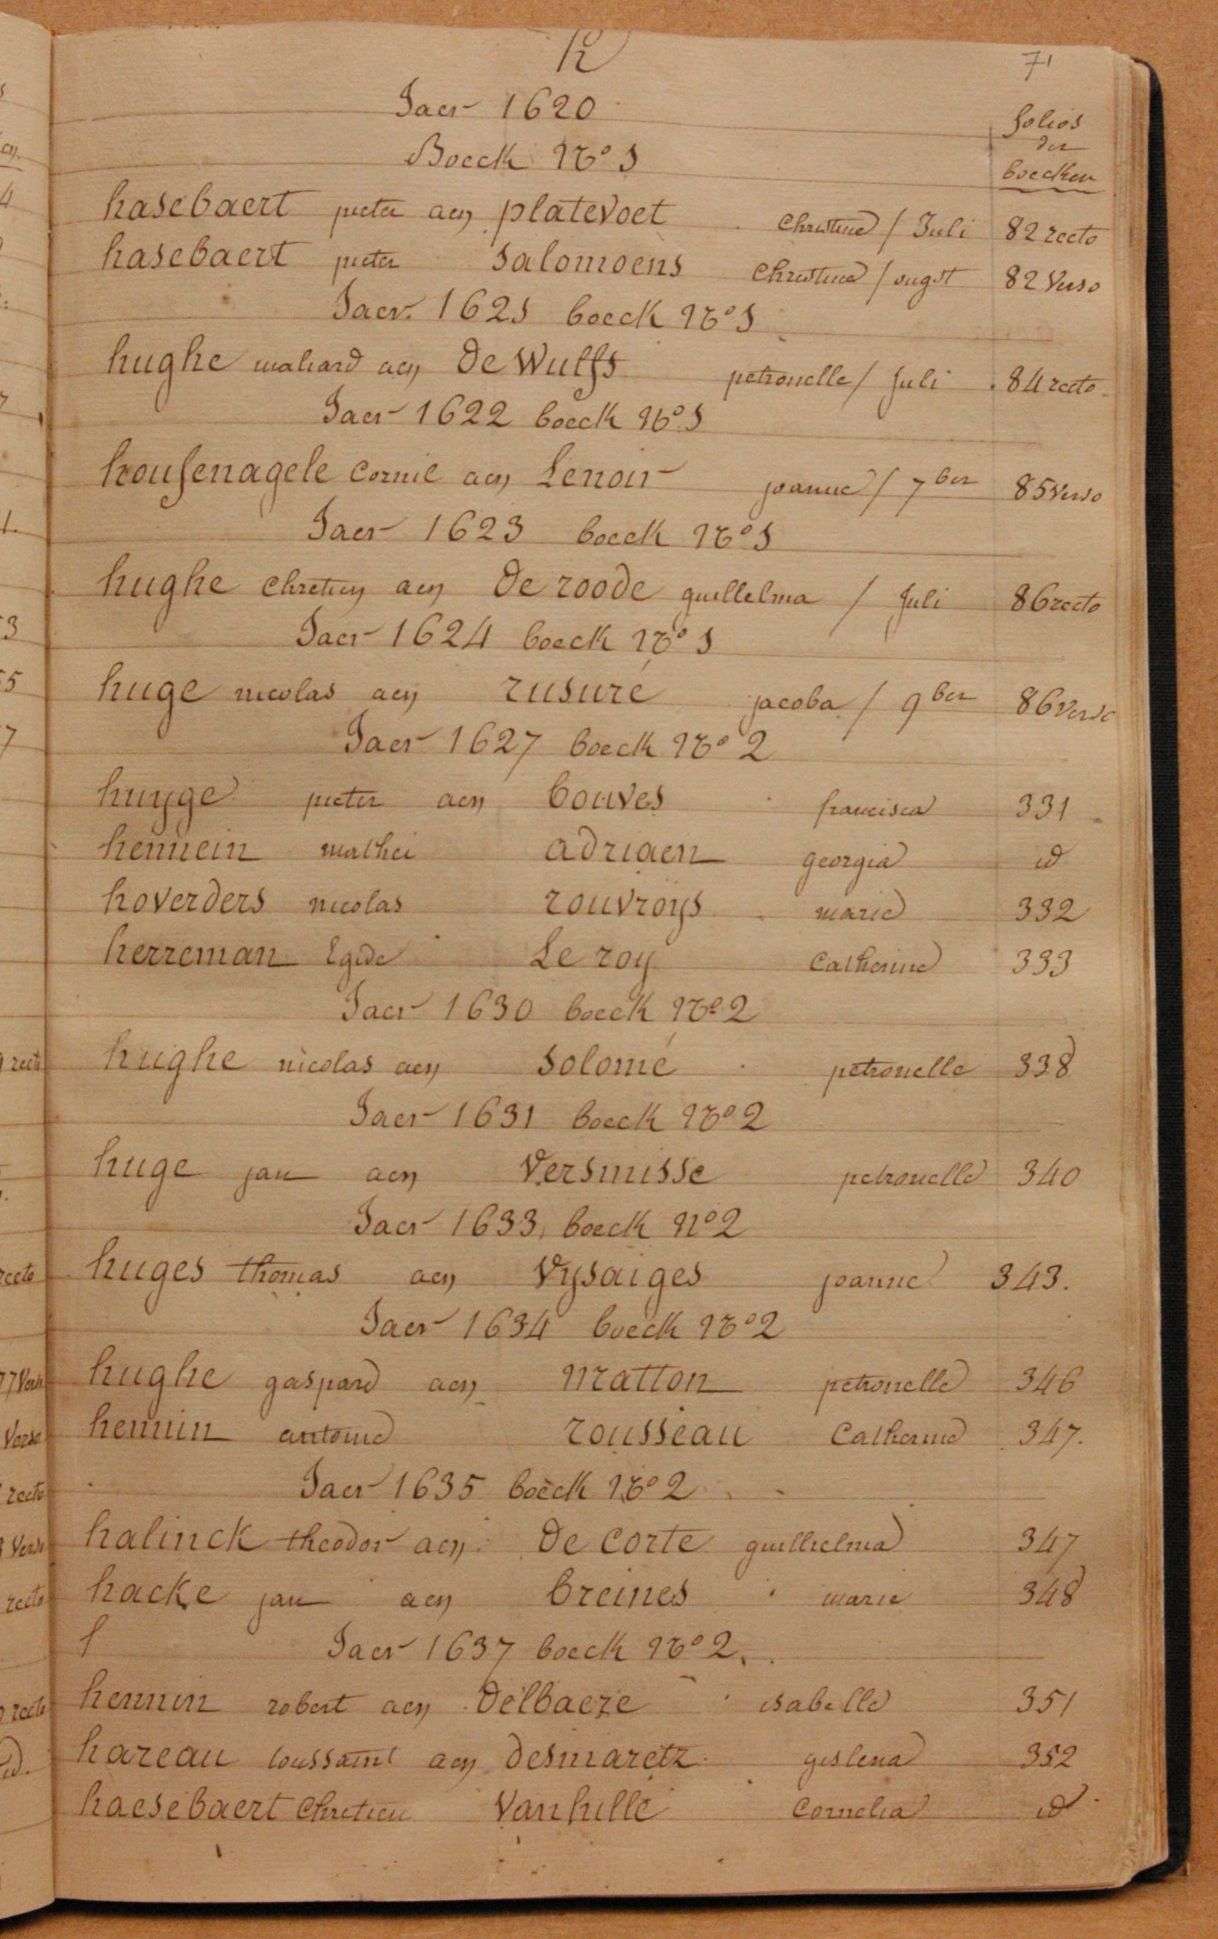 h 71
Jaer 1620 folios
der
Boeck No 1 boecken
hasebaert pieter aen platevoet christine / Juli 82 recto
hasebaert pieter salomoens christine / ougst 82 Verso
Jaer 1621 boeck No 1
hughe maliard aen De Wulfs petronelle / Juli 84 recto
Jaer 1622 boeck No 1
housenagele Cornil aen Lenoir joanne / 7ber 85 verso
Jaer 1623 boeck No 1
hughe chretien aen De roode guillelma / Juli 86 recto
Jaer 1624 boeck No 1
huge nicolas aen rusuré jacoba / 9ber 86 verso
Jaer 1627 boeck No 2
huyge pieter aen bouves francisca 331
hennein mathei adriaen georgia id
hoverders nicolas rouvroys marie 332
herreman Egide Le roy Catherine 333
Jaer 1630 boeck No 2
hughe nicolas aen solomé petronelle 338
Jaer 1631 boeck No 2
huge jan aen Versmisse petronelle 340
Jaer 1633 boeck No 2
huges thomas aen Vysaiges joanne 343.
Jaer 1634 boeck No 2
hughe gaspard aen matton petronelle 346
hennin antoine rousseau Catherine 347.
Jaer 1635 boeck No 2
halinck theodor aen De corte guillielma 347
hacke jan aen breines marie 348
Jaer 1637 boeck No 2.
hennin robert aen Delbaere isabelle 351
hareau toussaint aen desmaretz gislena 352
haesebaert Chretien Vanhille Cornelia id